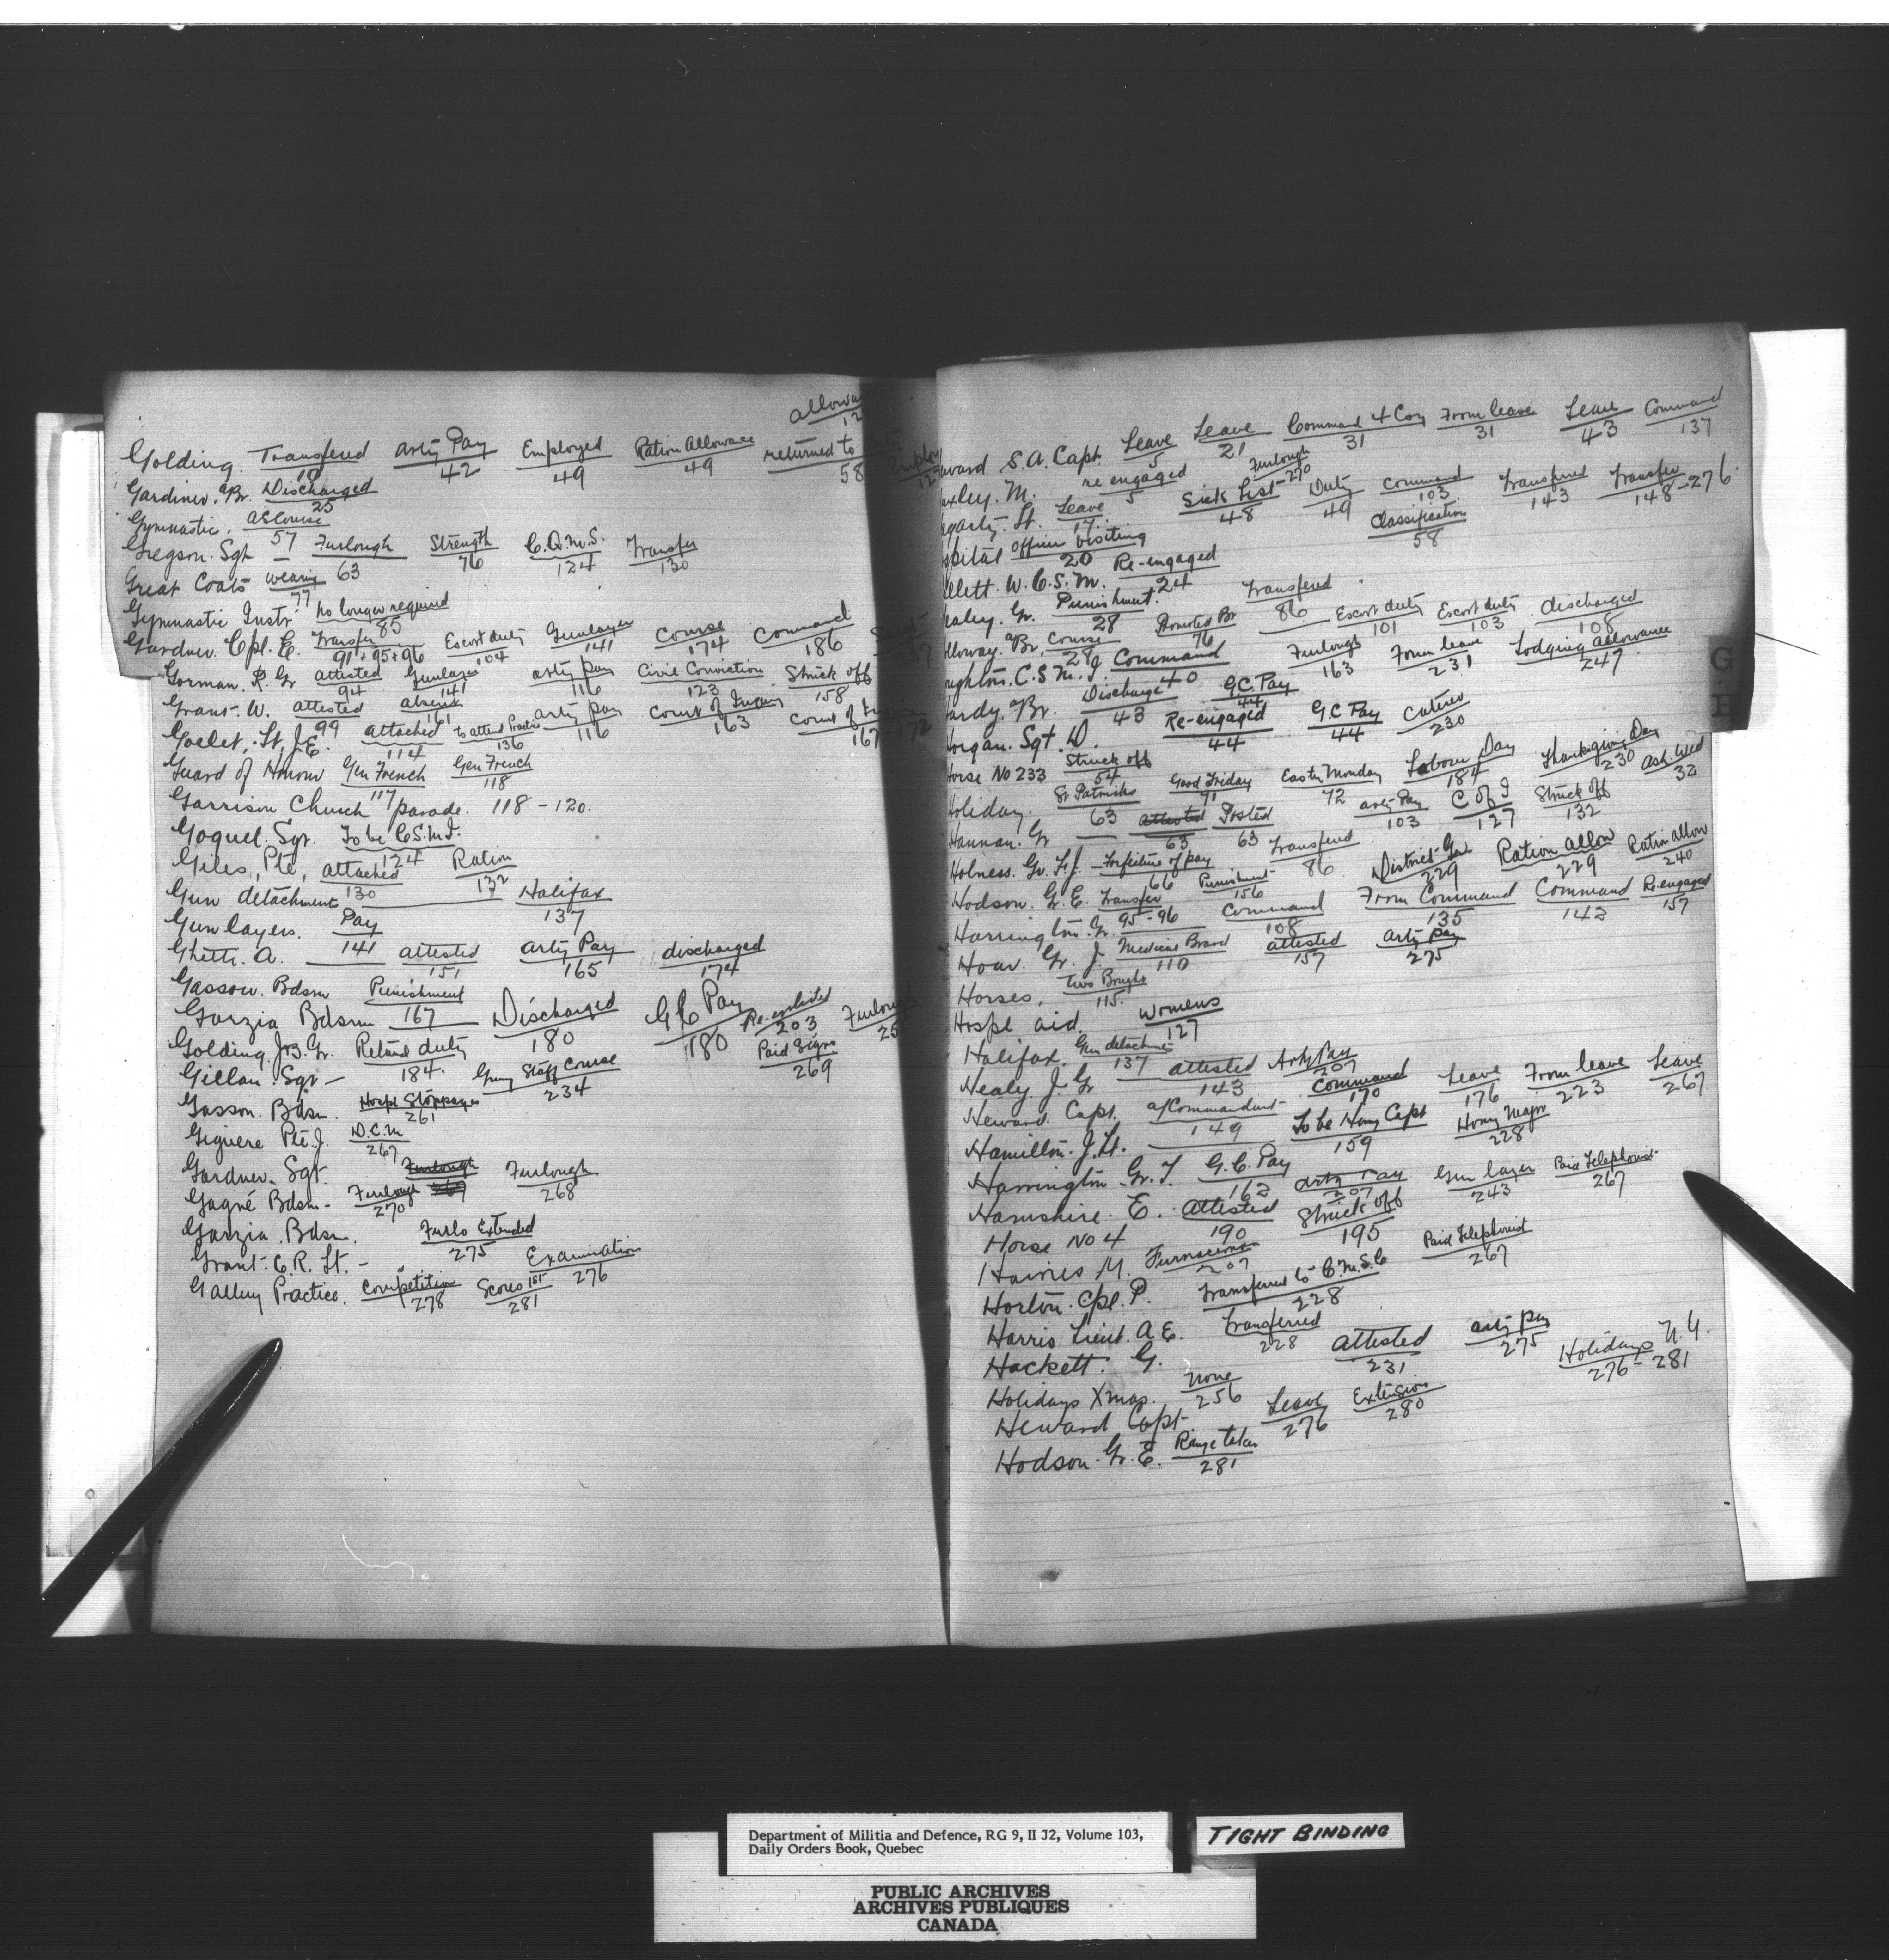 allowa
12
Golding. Transfered Arty Pay Employed Ration Allowance returned to duty Employ
10 42 49 49 58 12
Gardiner. a/Br. Discharged
25
Gymnastic. Course
57
Gregson. Sgt — Furlough Strength C.Q.M.S. Transfer
63 76 124 130
Great Coats wearing
77
Gymnastic Instr. no longer required
85
Gardner. Cpl. E. Transfer Escort duty Gunlayer Course Command
91 + 95 + 96 104 141 174 186 187
Gorman. R. Gr attested Gunlayer arty pay Civil Conviction Struck off
94 141 116 123 158
Grant. W. attested absent arty pay Court of Inquiry Court of Inquiry
99 161 116 163 167-172
Goelet, Lt. J.E. attached to attend Practice
114 136
Guard of Honour Gen French Gen French
117 118
Garrison Church parade. 118 - 120.
Goquel. Sgt. To be C.S.M.I.
124
Giles, Pte, attached Ration
130 132
Gun detachment Halifax
137
Gun layers. Pay
141
Ghetti. A. attested arty Pay discharged
151 165 174
Gasson. Bdsm Punishment
167
Garzia Bdsm Discharged G C Pay Re-enlisted Furlough
180 180 203 25
Golding. J.B. Gr. Retund duty
184.
Gillan. Sgt — Gunny Staff Course Paid Signr
234 269
Gasson. Bdsm. Hospl Stoppages
261
Giguere Pte. J. D.C.M
267
Gardner. Sgt. Furlough Furlough
267 268
Gagné Bdsm - Furlough
270
Garzia. Bdsm. Furlo Extended
275
Grant. C.R. Lt. - Examination
276
Gallery Practice. Competition Scores 1st
278 281
eward S.A. Capt. Leave Leave Command 4 Coy From leave Leave Command
5 21 31 31 43 137
uxley. M. re engaged Furlough
5 270
garty. Lt. Leave Sick List Duty Command Transferred Transfer
17. 48 49 103 143 148-276.
spital officer visiting Classification
20 58
llett. W. C.S.M. Re-engaged
24
ealey. Gr. Punishment. Transfered
28 86
lloway. a/Br. Course Promoted Br Escort duty Escort duty discharged
28 76 101 103 108
ughton. C.S.M.I. Command Furlough From leave Lodging allowance
40 163 231 247
ardy. a/Br. Discharge G.C. Pay
43 44
Horgan. Sgt. D. Re-engaged G C Pay Caterer
44 44 230
Horse No 233 Struck off
54
Holiday. St Patricks Good Friday Easter Monday Labour Day Thanksgiving Day Ash. Wed
63 71 72 184 230 32
Hannan. Gr attested Posted arty Pay C of I Struck off
63 63 103 127 132
Holness. Gr. F.J. Forfeiture of pay Transferred
66 86
Hodson. Gr. E. Transfer Punishment District Gnr Ration allow Ration allow
95-96 156 229 229 240
Harrington. Gr. Command From Command Command Re-engaged
108 135 143 157
Hour. Gr. J. Medical Board attested arty pay
110 157 275
Horses, Two Bought
115.
Hospl aid. womens
127
Halifax. Gun detachment
137
Healy. J. Gr attested Arty Pay
143 207
Heward. Capt. a/Commandant Command Leave From leave Leave
149 170 176 223 267
Hamilton. J. Lt. To be Hony Capt Hony Major
159 228
Harrington. Gr. T. G.C. Pay arty Pay Gun layer Paid Telephonist
162 207 243 267
Hamshire. E. attested
190
Horse No 4 Struck off
195
Haines M. Furnaceman Paid Telephonist
207 267
Horton. Cpl. P. Transferred to C.M.S.C
228
Harris Lieut. A E. Transferred
228
Hackett. G. attested arty pay
231 275
Holidays Xmas. None Holidays N.Y.
256 276-281
Heward Capt. Leave Extension
276 280
Hodson. Gr. E. Range taker
281
G
H
Department of Militia and Defence, RG 9, II J2, Volume 103,
Daily Orders Book, Quebec
TIGHT BINDING
PUBLIC ARCHIVES
ARCHIVES PUBLIQUES
CANADA